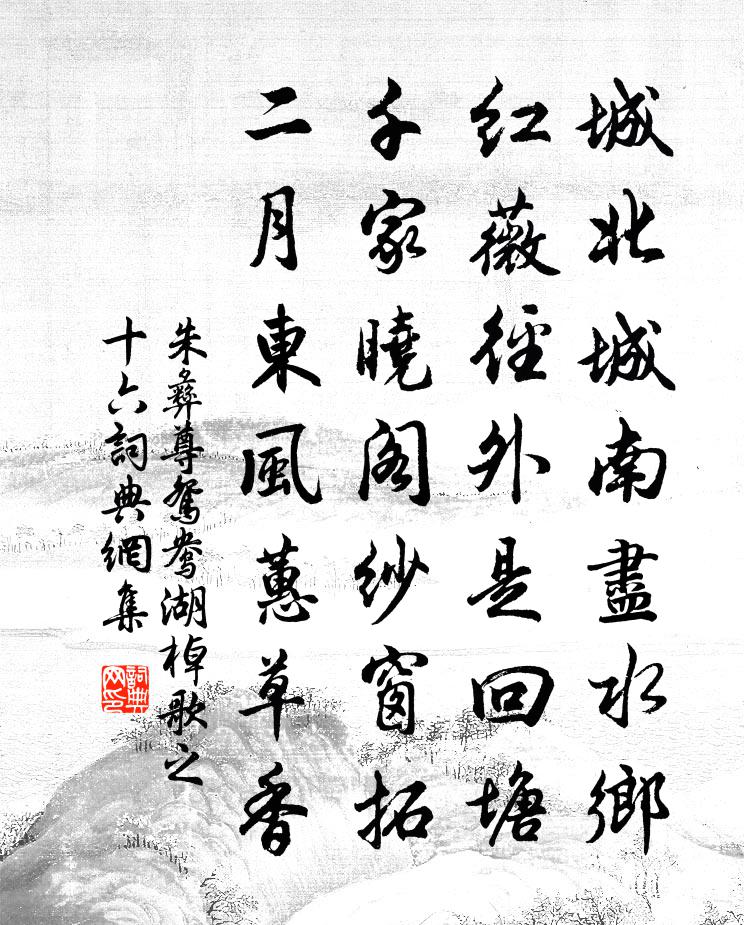 城北城南盡水鄉
紅薇徑外是回塘
千家曉閣紗窗拓
二月東風蕙草香
朱彝尊鴛鴦湖棹歌之
十六詞典網集
詞典
网印